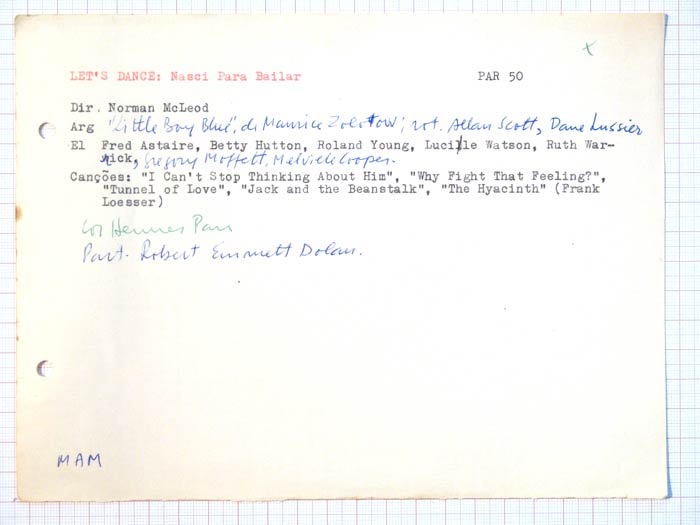 x
LET'S DANCE: Nasci Para Bailar PAR 50
Dir. Norman McLeod
Arg "Little Boy Blue", de Maurice Zolotow; rot. Allan Scott, Dane Lussier
El Fred Astaire, Betty Hutton, Roland Young, Lucille Watson, Ruth War-
rick, Gregory Moffett, Melville Cooper.
Canções: "I Can't Stop Thinking About Him", "Why Fight That Feeling?",
"Tunnel of Love", "Jack and the Beanstalk", "The Hyacinth" (Frank
Loesser)
Cor Hermes Pan
Part. Robert Emmett Dolan.
MAM